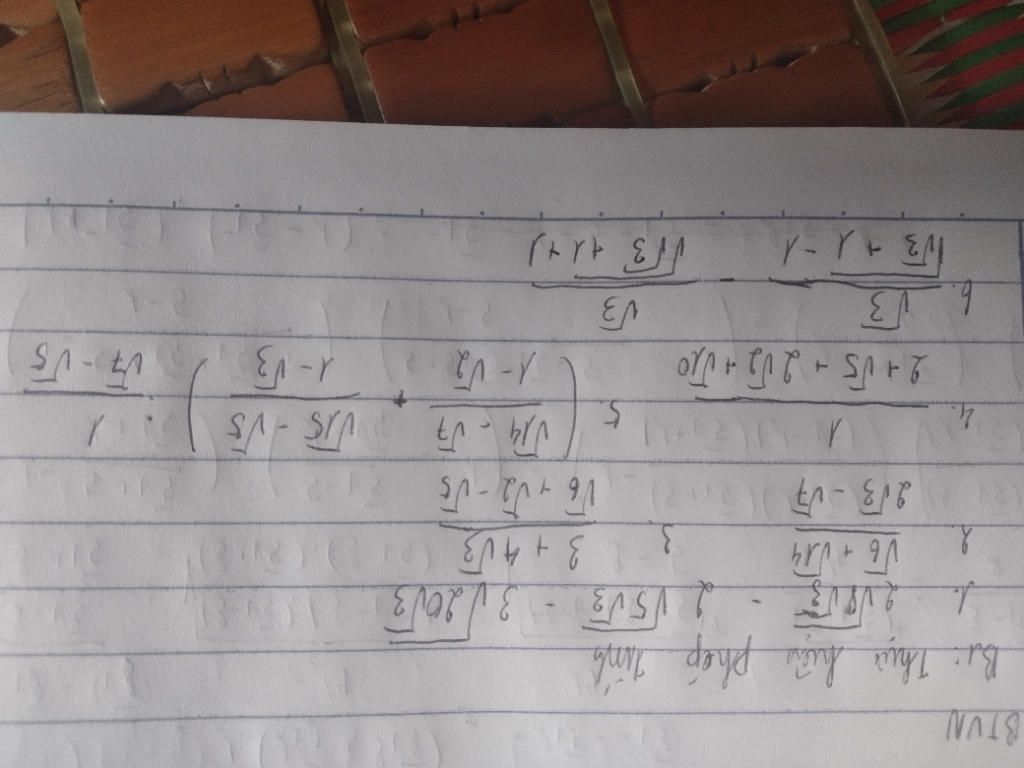 BTVN
B1: Thực hiện phép tính
1. 2√(8√3) - 2√(5√3) - 3√(20√3)
2. (√6 + √14)/(2√3 - √7) 3. (3 + 4√3)/(√6 + √2 - √5)
4. 1/(2+√5 + 2√2 + √10) 5. ((√14 - √7)/(1 - √2) + (√15 - √5)/(1 - √3)) : 1/(√7 - √5)
6. √3/(√(√3 + 1) - 1) - √3/(√(√3 + 1) + 1)